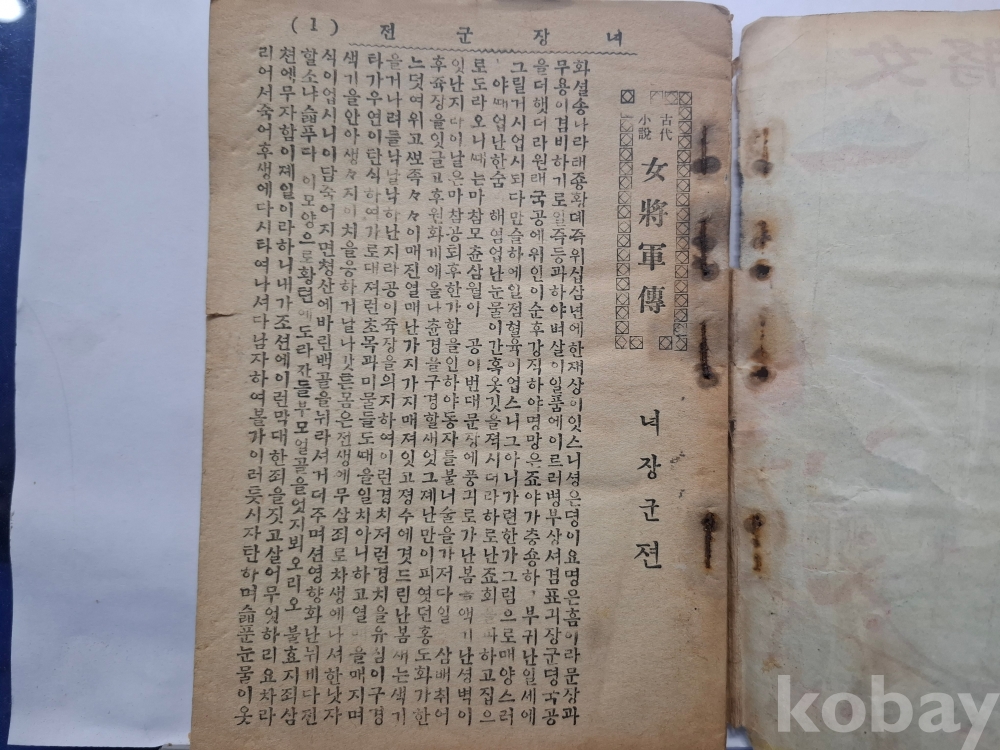 (1)
녀장군전
古代
小說
女將軍傳
녀장군젼
화셜송나라태종황뎨즉위십삼년에한재상이잇스니셩은뎡이요명은흠이라문장과
무용이겸비하기로일즉등과하야벼살이일품에이르러병부상셔겸표긔장군뎡국공
을더햇더라원래국공에위인이순후강직하야명망은죠야가츙용하 부귀난일세에
그릴거시업시되다만슬하에일졈혈육이업스니그아니가련한가그럼으로매양스러
야때업난한숨 해염업난눈물이간혹옷깃을젹시더라하로난죠회 파하고집으
로도라오니때는마참모츈삼월이 공이번대문장에풍긔로가난봄 객기난셩벽이
잇난지다이날은마참공퇴후한가함을인하야동자를불너술을가저다일 삼배취어
후쥭장을잇글고후원화계에올나츈경을구경할새잇그제난만이피엿던홍도화가한
느덧여위고뾰족々々이매진열매난가지가지매져잇고졍수에깃드린난봄새는색기
을거나려를낙날낙하난지라공이쥭장을의지하여이런경치저런경치을유심이구경
타가우연이탄식하여가로대져런초목과미물들도때을일치아니하고열 을매지며
색기을안아생々지이치을응하거날나갓튼몸은전생에무삼죄로차생에나셔한낫자
식이업시니이담죽어지면쳥산에바린백골을뉘라셔거더주며션영향화난뉘게다젼
할소냐슯푸다 이모양으로황텬에도라간들부모얼골을엇지뵈오리오 불효지죄삼
쳔에무자함이졔일이라하니내가조션에이런막대한죄을짓고살어무엇하리요차라
리어서죽어후생에다시타여나셔다남자하여볼가이러듯시자탄하며슯푼눈물이옷
女將
kobay